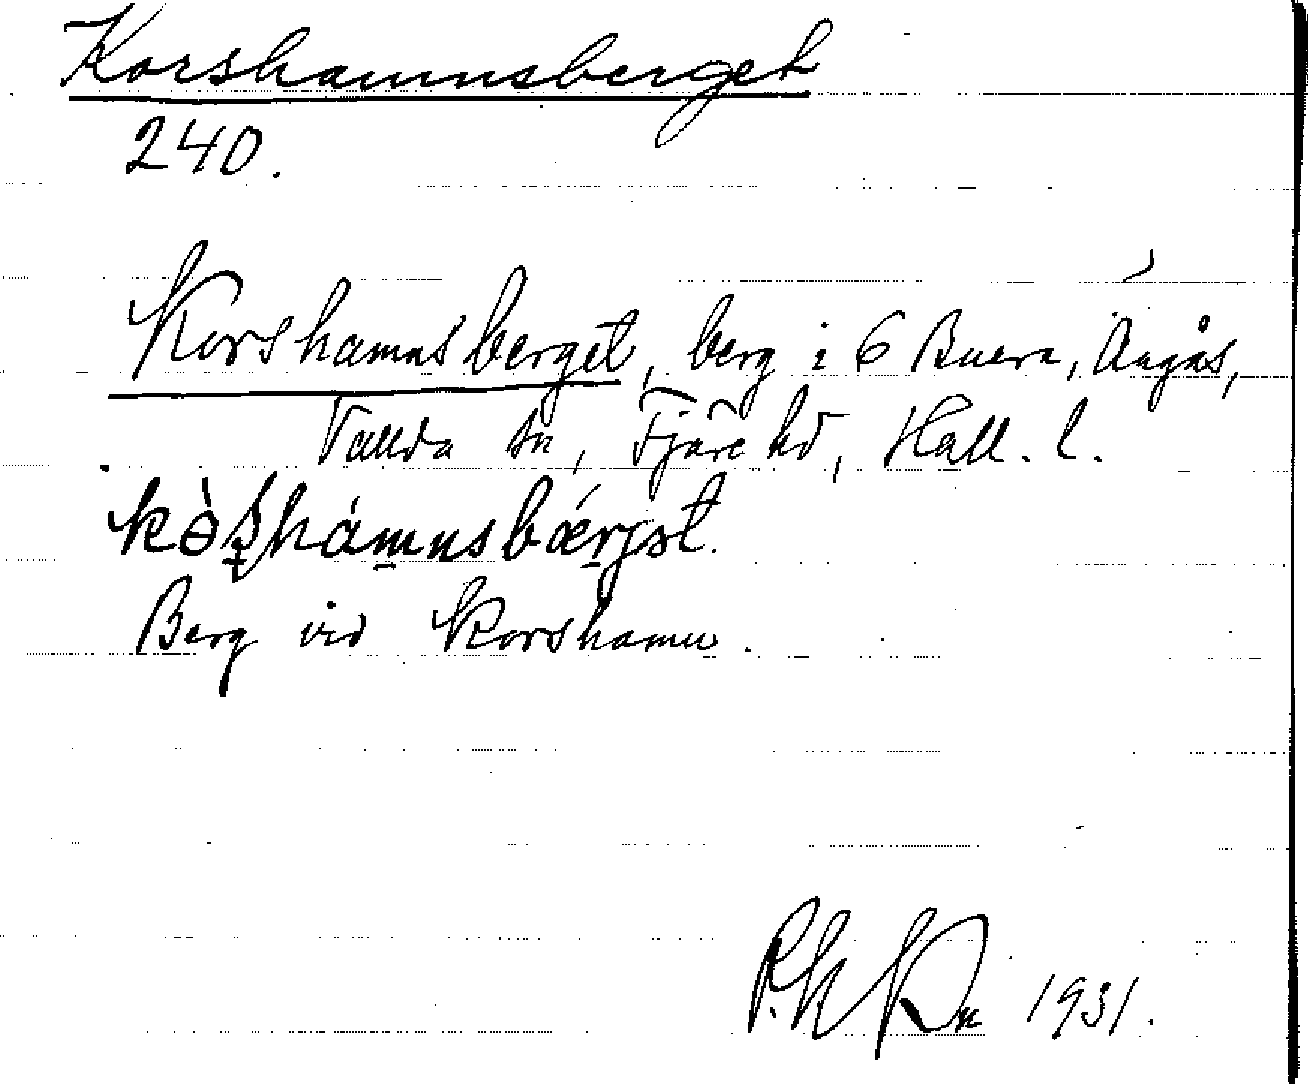 Korshamnsberget
240.
Korshamnsberget, berg i 6 Buera, Ängås,
Vallda sn, Fjäre hd, Hall. l.
Berg vid Korshamn.
1931.